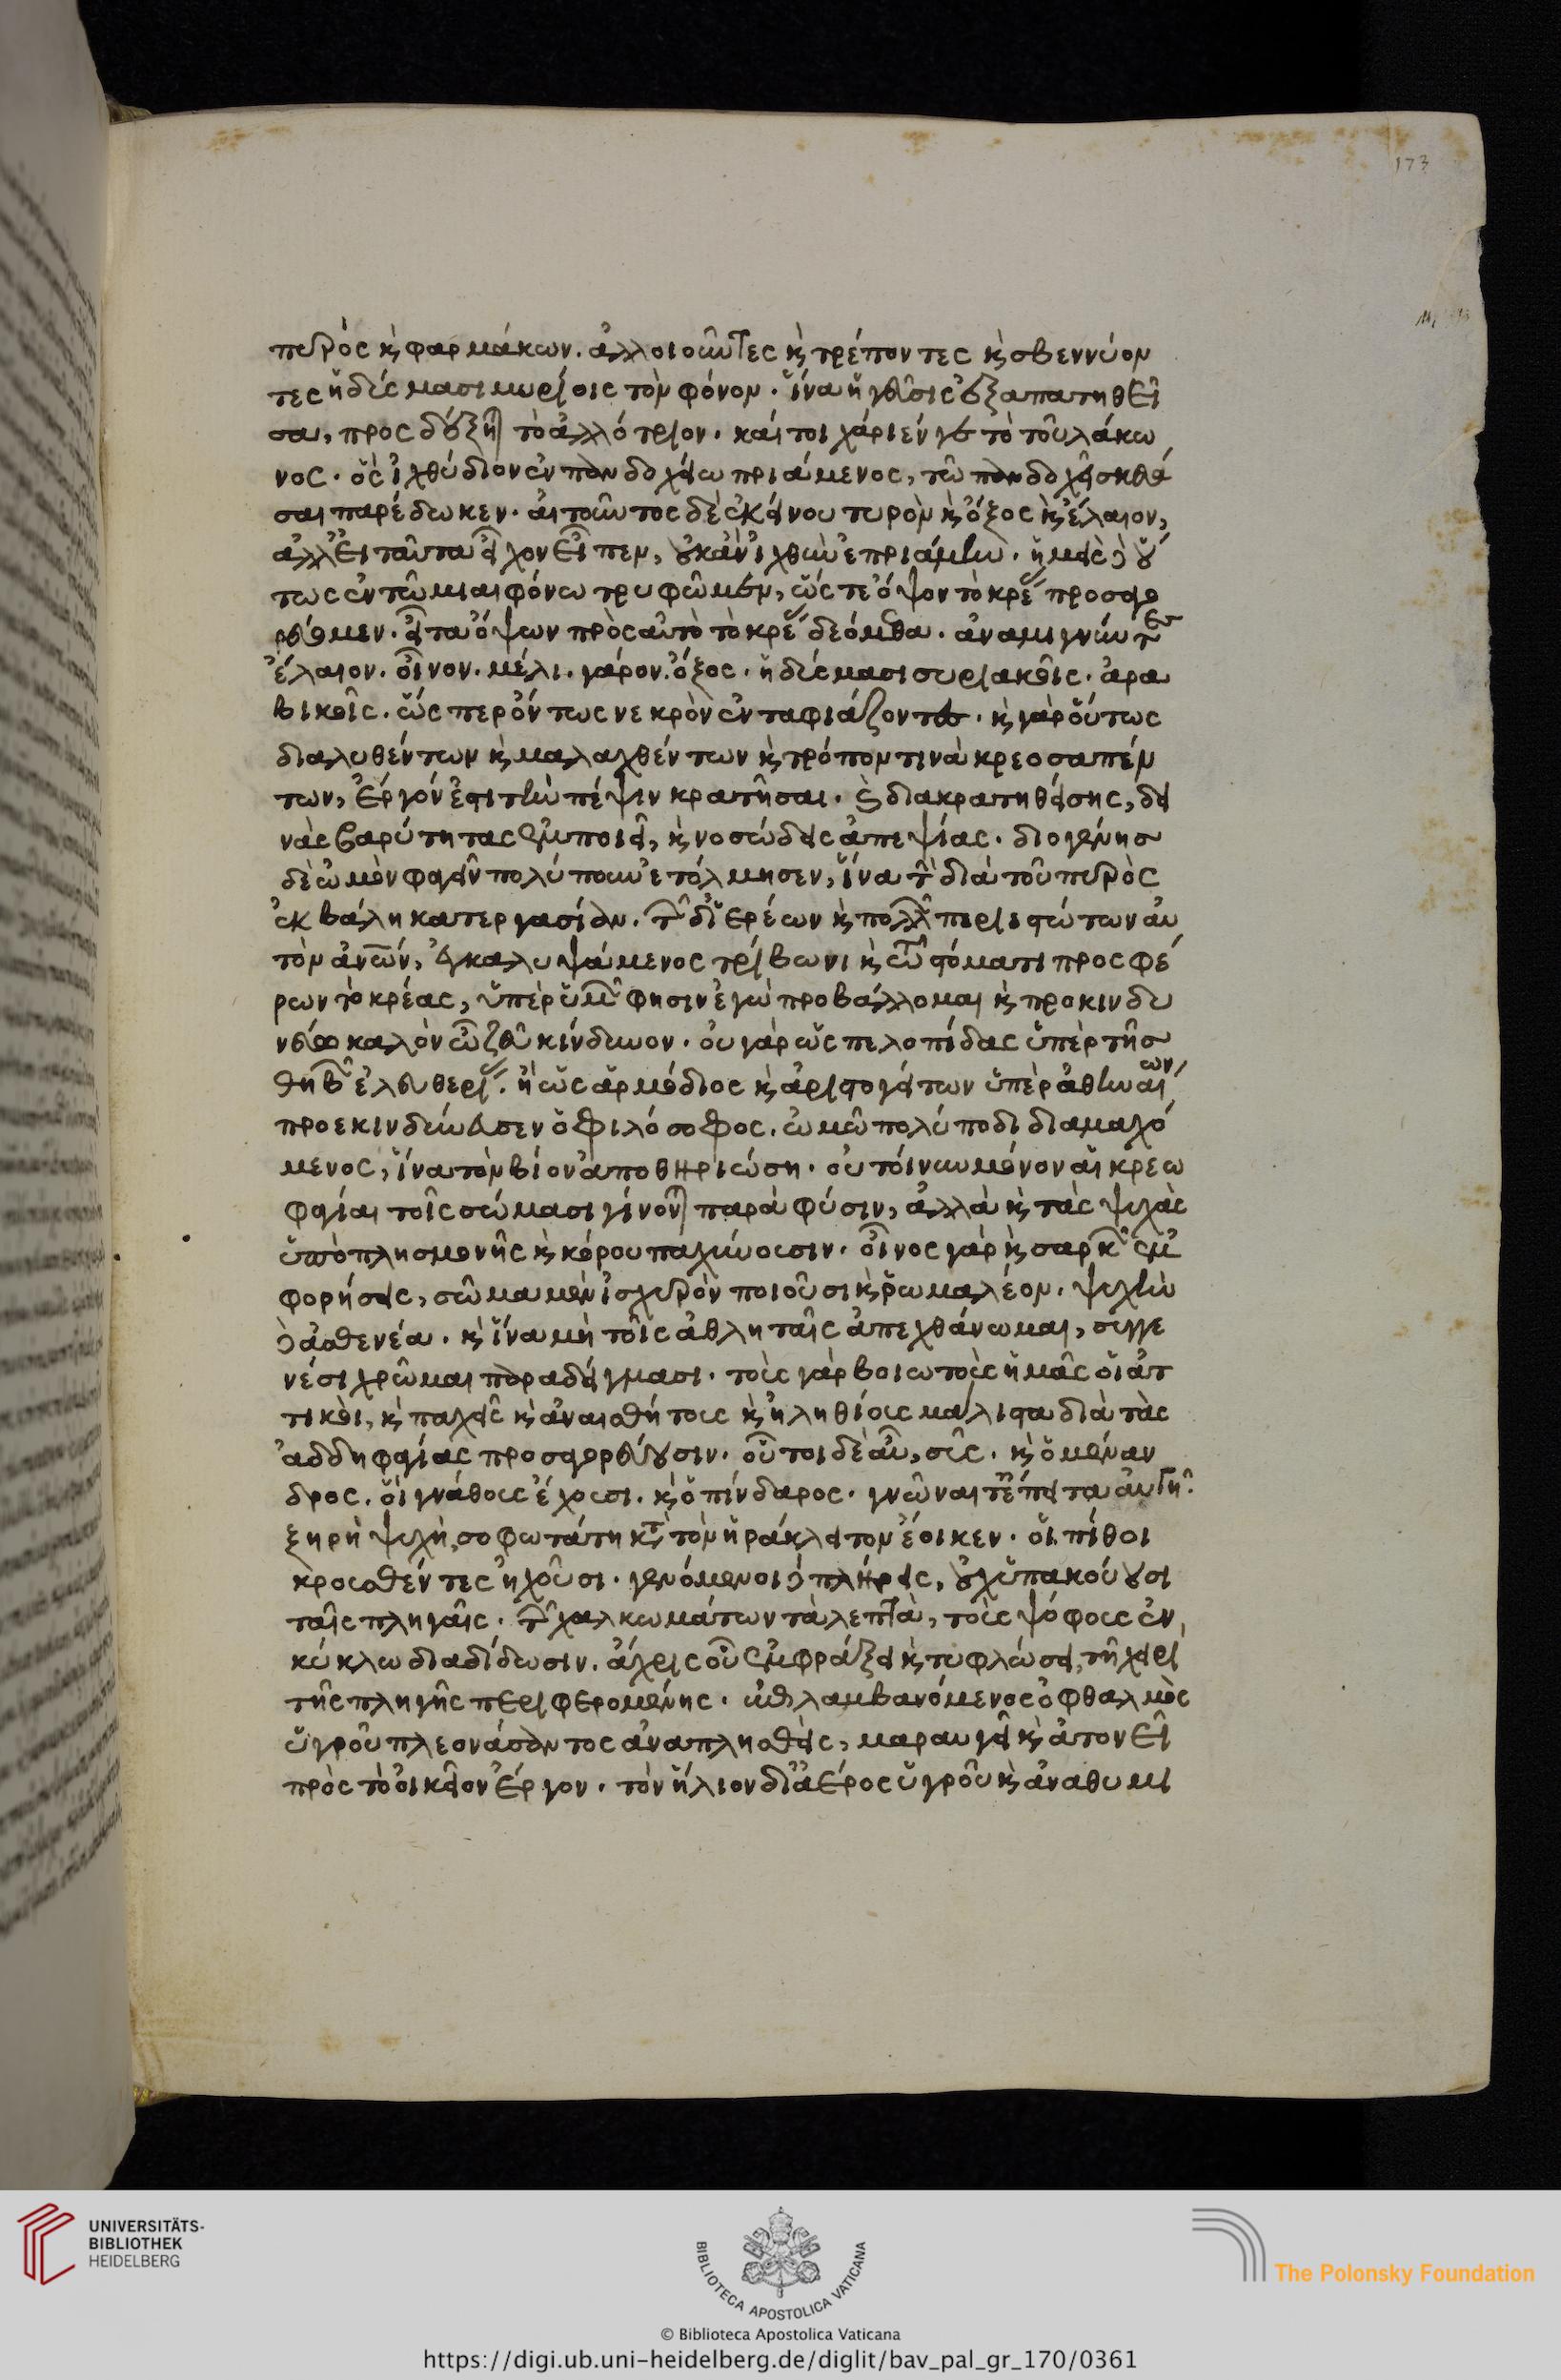 173
πυρὸς ϗ φαρμάκων. ἀλλοιοῦντες ϗ τρέποντες ϗ σβεννύον
τες ἡδύσμασι μυρίοις τὸν φόνον. ἵνα ἡ γεῦσις ἐξαπατηθεῖ
σα, προσδέξηται τὸ ἀλλότριον. καίτοι χάριέν γε τὸ τοῦ λάκω
νος. ὃς ἰχθύδιον ἐν πανδοχείω πριάμενος, τῶ πανδοχεῖ σκευά
σαι παρέδωκεν. αἰτοῦντος δὲ ἐκείνου τυρὸν ϗ ὄξος ϗ ἔλαιον,
ἀλλ' εἰ ταῦτα εἶχον εἶπεν, οὐκ ἂν ἰχθὺν ἐπριάμην. ἡμεῖς δὲ οὕ
τως ἐν τῶ μιαιφόνω τρυφῶμεν, ὥστε ὄψον τὸ κρέας προσαγο
ρεύομεν. εἶτα ὄψων πρὸς αὐτὸ τὸ κρέας δεόμεθα. ἀναμιγνύντες
ἔλαιον. οἶνον. μέλι. γάρον. ὄξος. ἡδύσμασι συριακοῖς. ἀρα
βικοῖς. ὥσπερ ὄντως νεκρὸν ἐνταφιάζοντες. ϗ γὰρ οὕτως
διαλυθέντων ϗ μαλαχθέντων ϗ τρόπον τινὰ κρεοσαπέν
των, ἔργον ἐστι τὴν πέψιν κρατῆσαι. ϗ διακρατηθείσης, δει
νὰς βαρύτητας ἐμποιεῖ, ϗ νοσώδεις ἀπεψίας. διογένης
δὲ ὠμὸν φαγεῖν πολύπουν ἐτόλμησεν, ἵνα τὴν διὰ τοῦ πυρὸς
ἐκβάλη κατεργασίαν. τῶν δὲ ἱερέων ϗ πολλῶν περιεστώτων αὐ
τὸν ἀνων, ἐγκαλυψάμενος τρίβωνι ϗ τῶ στόματι προσφέ
ρων τὸ κρέας, ὑπὲρ ὑμῶν φησιν ἐγὼ προβάλλομαι ϗ προκινδυ
νεύω καλὸν ὦ ζεῦ κίνδυνον. οὐ γὰρ ὡς πελοπίδας ὑπὲρ τῆς
θηβῶν ἐλευθερίας. ἢ ὡς ἁρμόδιος ϗ ἀριστογείτων ὑπὲρ ἀθηναίων
προεκινδύνευσεν ὁ φιλόσοφος. ὠμῶ πολύποδι διαμαχό
μενος, ἵνα τὸν βίον ἀποθηριώση. οὐ τοίνυν μόνον αἱ κρεω
φαγίαι τοῖς σώμασι γίνονται παρὰ φύσιν, ἀλλὰ ϗ τὰς ψυχὰς
ὑπὸ πλησμονῆς ϗ κόρου παχύνουσιν. οἶνος γὰρ ϗ σαρκῶν ἐμ
φορήσεις, σῶμα μὲν ἰσχυρὸν ποιοῦσι ϗ ῥωμαλέον. ψυχὴν
δὲ ἀσθενέα. ϗ ἵνα μὴ τοῖς ἀθληταῖς ἀπεχθάνωμαι, συγγε
νέσι χρῶμαι παραδείγμασι. τοὺς γὰρ βοιωτοὺς ἡμᾶς οἱ ἀτ
τικοὶ, ϗ παχεῖς ϗ ἀναισθήτους ϗ ἠληθίους μάλιστα διὰ τὰς
ἀδδηφαγίας προσαγορεύουσιν. οὗτοι δὲ αὖ, σῦς. ϗ ὁ μέναν
δρος. οἱ γνάθους ἔχουσι. ϗ ὁ πίνδαρος. γνῶναι τε ἔπειτα αὐγὴ.
ξηρὴ ψυχὴ, σοφωτάτη κτ τὸν ἡράκλειτον ἔοικεν. οἱ πίθοι
κρουσθέντες ἠχοῦσι. γενόμενοι δὲ πλήρεις, οὐχ ὑπακούουσι
ταῖς πληγαῖς. τῶν χαλκωμάτων τὰ λεπτὰ, τοὺς ψόφους ἐν
κύκλω διαδίδωσιν. ἄχρις οὗ ἐμφράξει ϗ τυφλώσει, τῆ χειρὶ
τῆς πληγῆς περιφερομένης. ἐπιλαμβανόμενος ὀφθαλμὸς
ὑγροῦ πλεονάσαντος ἀναπλησθεὶς, μαραυγεῖ ϗ ἀτονεῖ
πρὸς τὸ οἰκεῖον ἔργον. τὸν ἥλιον δι' ἀέρος ὑγροῦ ϗ ἀναθυμι
UNIVERSITÄTS-
BIBLIOTHEK
HEIDELBERG
BIBLIOTECA APOSTOLICA VATICANA
The Polonsky Foundation
© Biblioteca Apostolica Vaticana
https://digi.ub.uni-heidelberg.de/diglit/bav_pal_gr_170/0361